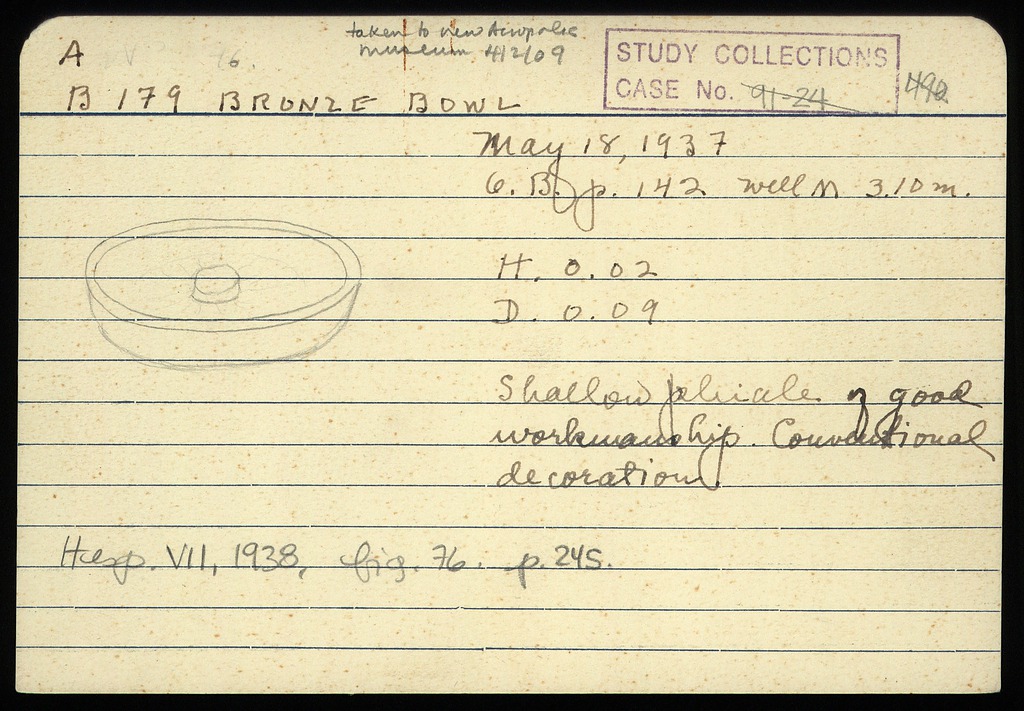 taken to new Acropolis
museum 4/2/09
A
16.
STUDY COLLECTIONS
CASE No. 91-24 490
B 179 BRONZE BOWL
May 18, 1937
G. B. p. 142 Well M 3.10 m.
H. 0.02
D. 0.09
Shallow phiale of good
workmanship. Conventional
decoration.
Hesp. VII, 1938, fig. 76. p. 245.